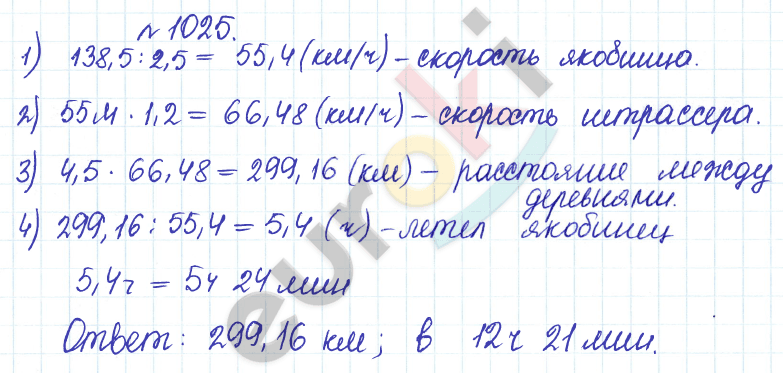 № 1025.
1) 138,5 : 2,5 = 55,4 (км/ч) – скорость якобинца.
2) 55,4 · 1,2 = 66,48 (км/ч) – скорость штрассера.
3) 4,5 · 66,48 = 299,16 (км) – расстояние между
деревнями.
4) 299,16 : 55,4 = 5,4 (ч) – летел якобинец
5,4ч = 5ч 24 мин
Ответ: 299,16 км; в 12ч 21 мин.
euroki